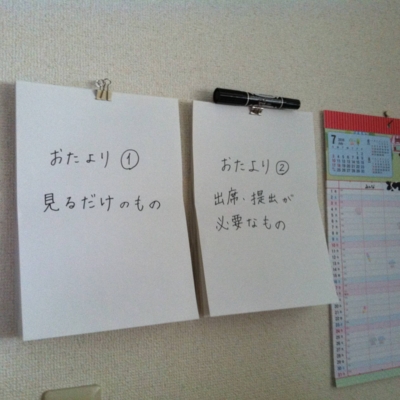 おたより ①
見るだけのもの
おたより ②
出席・提出が
必要なもの
7